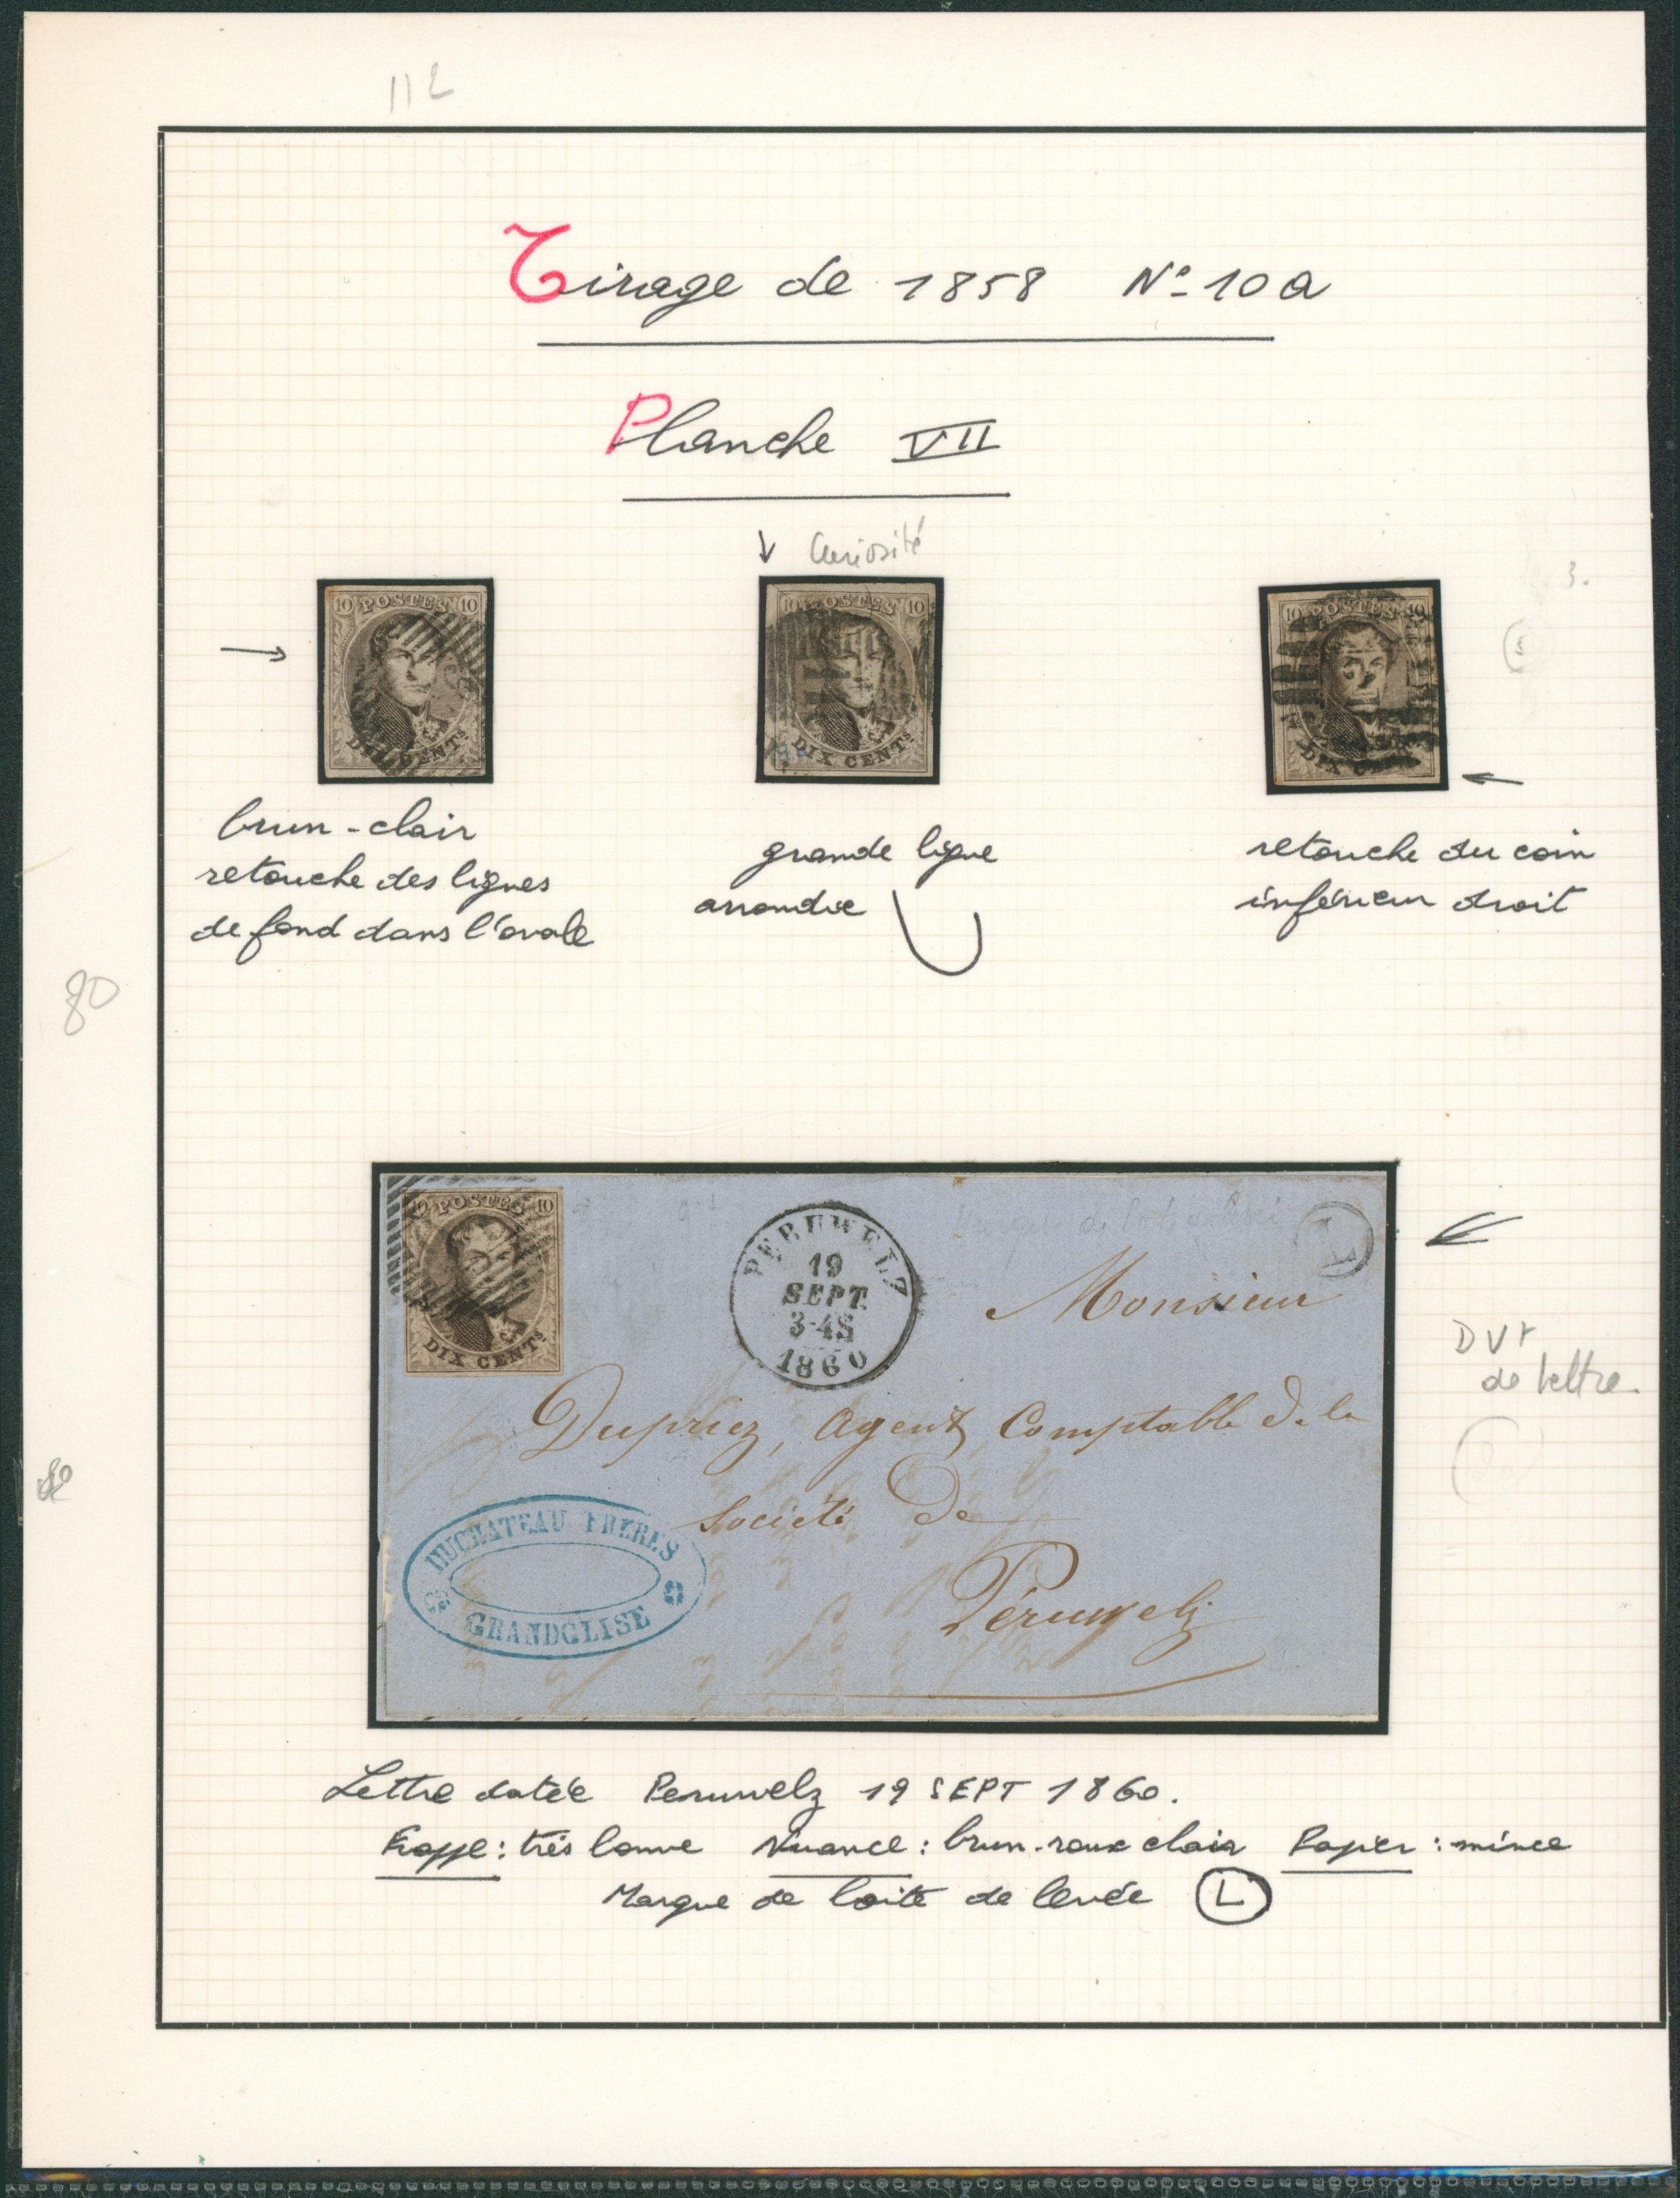 112
Tirage de 1858 N° 10a
Planche VII
Curiosité
10 POSTES 10
DIX CENTS
10 POSTES 10
DIX CENTS
10 POSTES 10
DIX
brun-clair
retouche des lignes
de fond dans l'ovale
grande ligne
arrondie
retouche du coin
inférieur droit
80
10 POSTES 10
DIX CENTS
PERUWELZ
19
SEPT.
3-4S
1860
Monsieur
Dupriez, Agent Comptable de la
Société de
Péruwelz
DUCHATEAU FRERES
GRANDGLISE
DVT
de lettre
Lettre datée Peruwelz 19 SEPT 1860.
Frappe : très bonne Nuance : brun-roux clair Papier : mince
Marque de boite de levée L